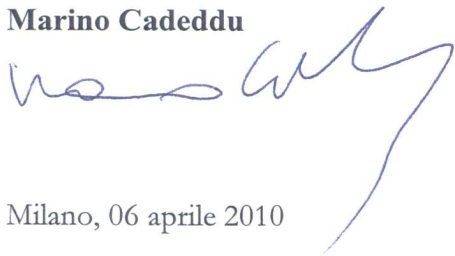 Marino Cadeddu
Milano, 06 aprile 2010